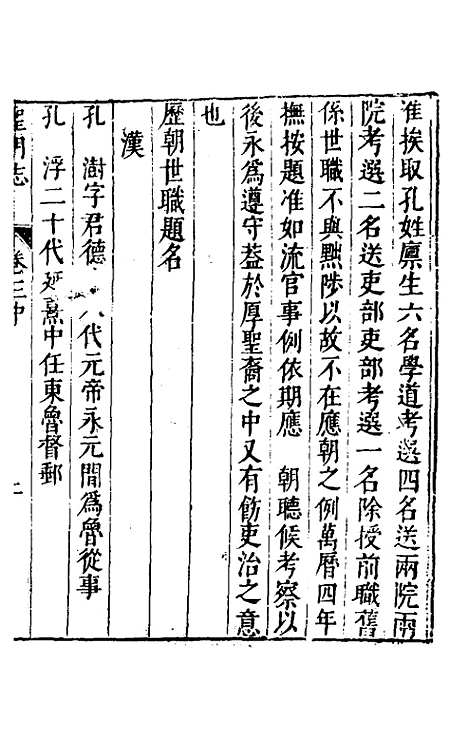 准挨取孔姓廩生六名學道考選四名送兩院兩
院考選二名送吏部吏部考選一名除授前職舊
係世職不與黜陟以故不在應朝之例萬曆四年
撫按題准如流官事例依期應　朝聽候考察以
後永為遵守葢於厚聖裔之中又有飭吏治之意
也
歷朝世職題名
漢
孔　澍字君德　八代元帝永元間為魯從事
孔　浮二十代延熹中任東魯督郵
聖門志　卷三中　二